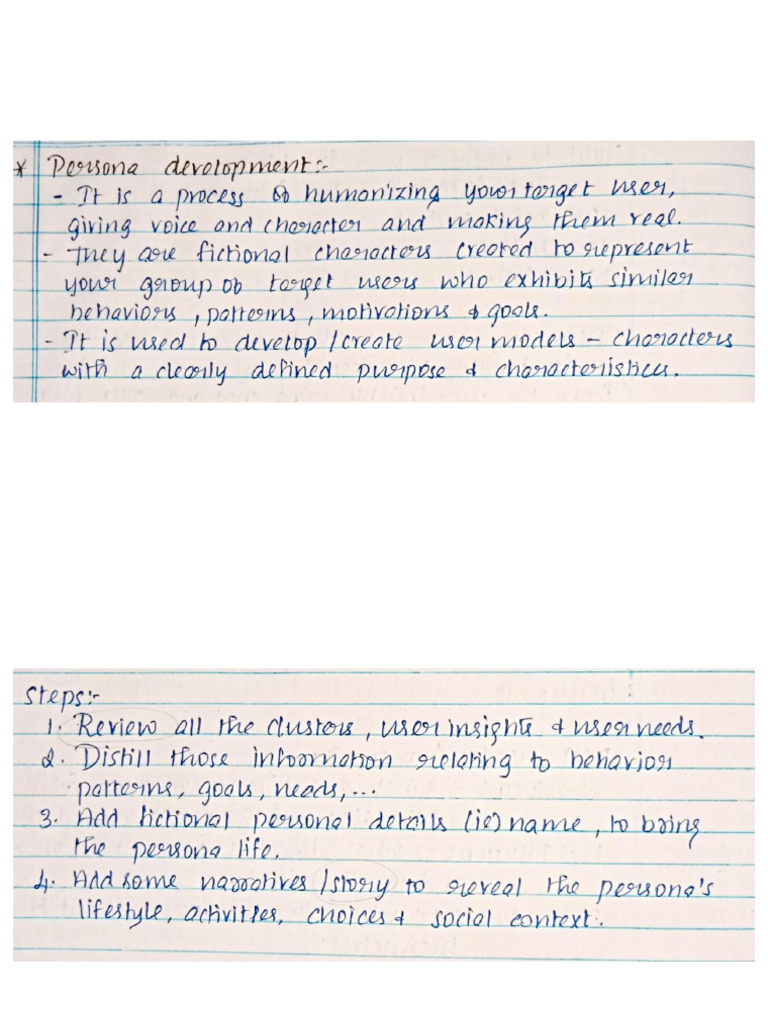 * Persona development:-
- It is a process of humanizing your target user,
giving voice and character and making them real.
- They are fictional characters created to represent
your group of target users who exhibits similar
behaviors, patterns, motivations & goals.
- It is used to develop/create user models - characters
with a clearly defined purpose & characteristics.
Steps:-
1. Review all the clusters, user insights & user needs.
2. Distill those information relating to behavior
patterns, goals, needs,...
3. Add fictional personal details (ie) name, to bring
the persona life.
4. Add some narratives/story to reveal the persona's
lifestyle, activities, choices & social context.